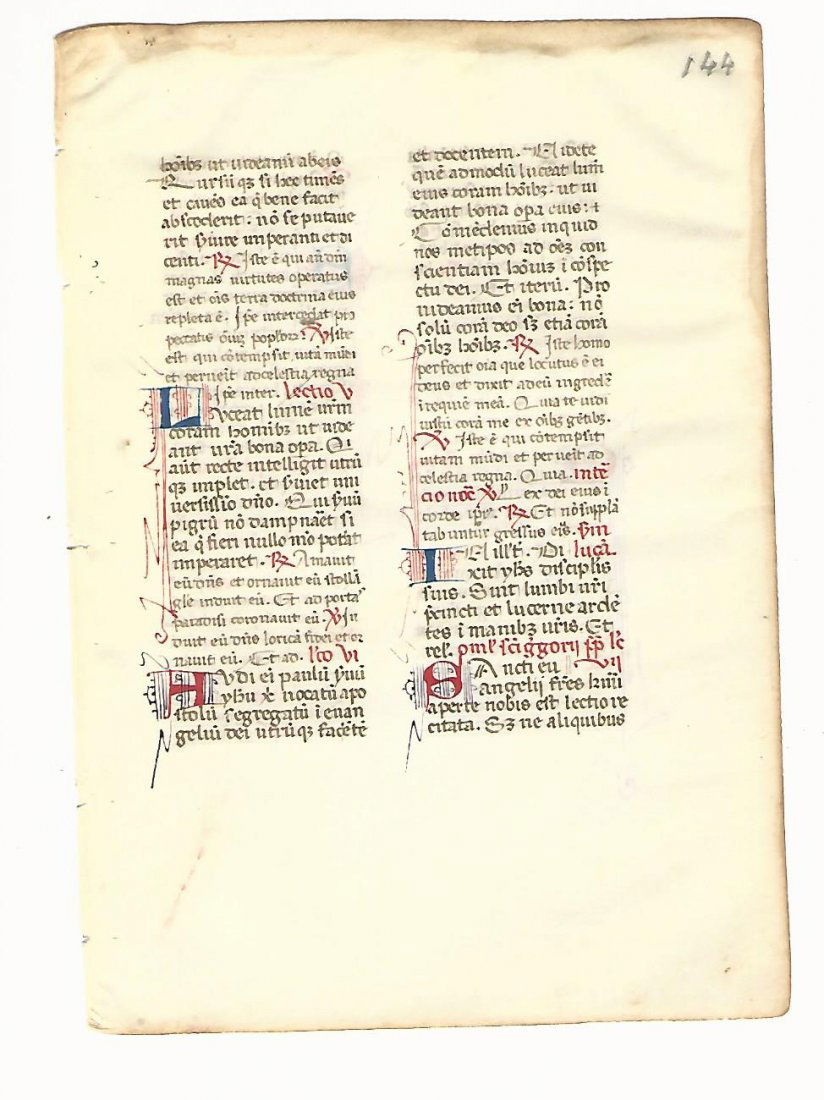 144
hoībꝫ ut videanī ab eis
Rursū qꝫ si hec timēs
et cavēs ea q̄ bene facit
absconderit: nō se putave
rit svire imperanti et di
centi. ℟ Iste ē qui an̄ dm̄
magnas virtutes operatus
est et oīs terra doctrina eius
repleta ē. Ip̄e intercedat pro
peccatis oīuꝫ poploꝝ. ℣ Iste
est qui cōtempsit vitā mūdi
et perveīt ad celestia regna
Ip̄e inter. Lectio V
Luceat lumē vrm̄
coram homībꝫ ut vide
ant vr̄a bona opa. Qi
aūt recte intelligit utrū
qꝫ implet. et sviet uni
versissīo dn̄o. Qui svū
pigrū nō dampnaēt si
ea q̄ fieri nullo mō potāt
imperaret. ℟ Amavit
eū dn̄s et ornavit eū stollā
gl̄e induit eū. Et ad portas
paradisi coronavit eū. ℣ In
duit eū dn̄s loricā fidei et or
navit eū. Et ad. lc̄o VI
Audi ei paulū svū
yhu xp̄i vocatū apo
stolū segregatū ī evan
geliū dei utrūqꝫ faciētē
et docentem. Videte
quē admodū luceat lum̄
eius coram hoībꝫ. ut vi
deant bona opa eius: ⁊
Cōmēdemus inquid
nos metipos ad oēꝫ con
scientiam hoīuꝫ ī cōspe
ctu dei. Et iterū. Pro
videamus ei bona: nō
solū corā deo sꝫ etiā corā
oībꝫ hoībꝫ. ℟ Iste homo
perfecit oīa que locutus ē ei
deus et dixit ad eū ingredeꝫ
ī requiē meā. Quia te vidi
iustū corā me ex oībꝫ gētibꝫ.
℣ Iste ē qui cōtempsit
vitam mūdi et perveīt ad
celestia regna. Quia. In tec̄
cio noc̄ ℣ Lex dei eius ī
corde ip̄iꝰ. ℟ Et nō supplā
tabuntur gressus eiꝰ. Sm̄
In ill̄t. Di lucā.
xit yhs discipl̄is
suis. Sint lumbi vr̄i
p̄cincti et lucerne ardē
tes ī manibꝫ vr̄is. Et
rel̄. Omel̄ sc̄i ḡgorij pp̄ lc̄
Sancti eu VII
angelij fr̄es kmī
aperte nobis est lectio re
citata. Sꝫ ne aliquibus